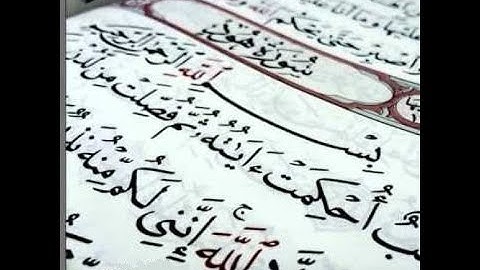 ٱصْبِرْ حَتَّىٰ يَحْكُمَ ٱللَّهُ
سُورَةُ هُودٍ
بِسْمِ ٱللَّهِ ٱلرَّحْمَٰنِ ٱلرَّحِيمِ
أُحْكِمَتْ ءَايَٰتُهُۥ ثُمَّ فُصِّلَتْ مِن لَّدُنْ
ٱللَّهَ إِنَّنِى لَكُم مِّنْهُ